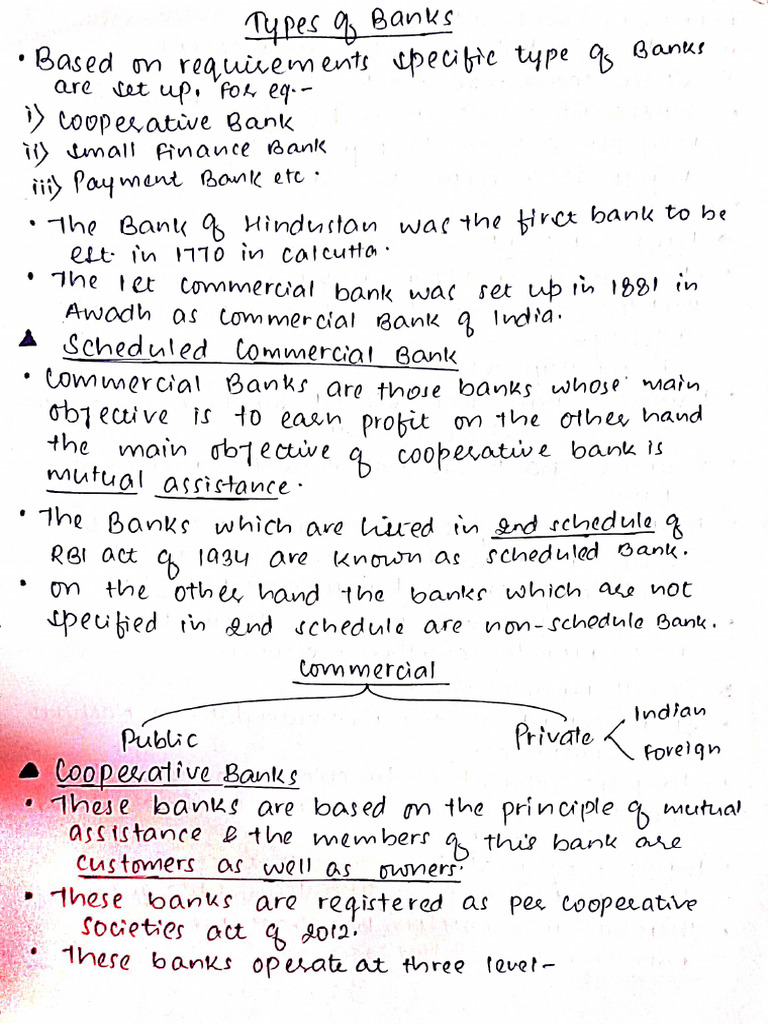 Types of Banks
• Based on requirements specific type of Banks
are set up. for eg.-
i) Cooperative Bank
ii) Small Finance Bank
iii) Payment Bank etc.
• The Bank of Hindustan was the first bank to be
est. in 1770 in Calcutta.
• The 1st commercial bank was set up in 1881 in
Awadh as commercial Bank of India.
▲ Scheduled Commercial Bank
• Commercial Banks are those banks whose main
objective is to earn profit on the other hand
the main objective of cooperative bank is
mutual assistance.
• The Banks which are listed in 2nd schedule of
RBI act of 1934 are known as scheduled Bank.
• on the other hand the banks which are not
specified in 2nd schedule are non-schedule Bank.
Commercial
Public
Private
Indian
Foreign
▲ Cooperative Banks
• These banks are based on the principle of mutual
assistance & the members of this bank are
customers as well as owners.
• These banks are registered as per cooperative
societies act of 2012.
• These banks operate at three level-